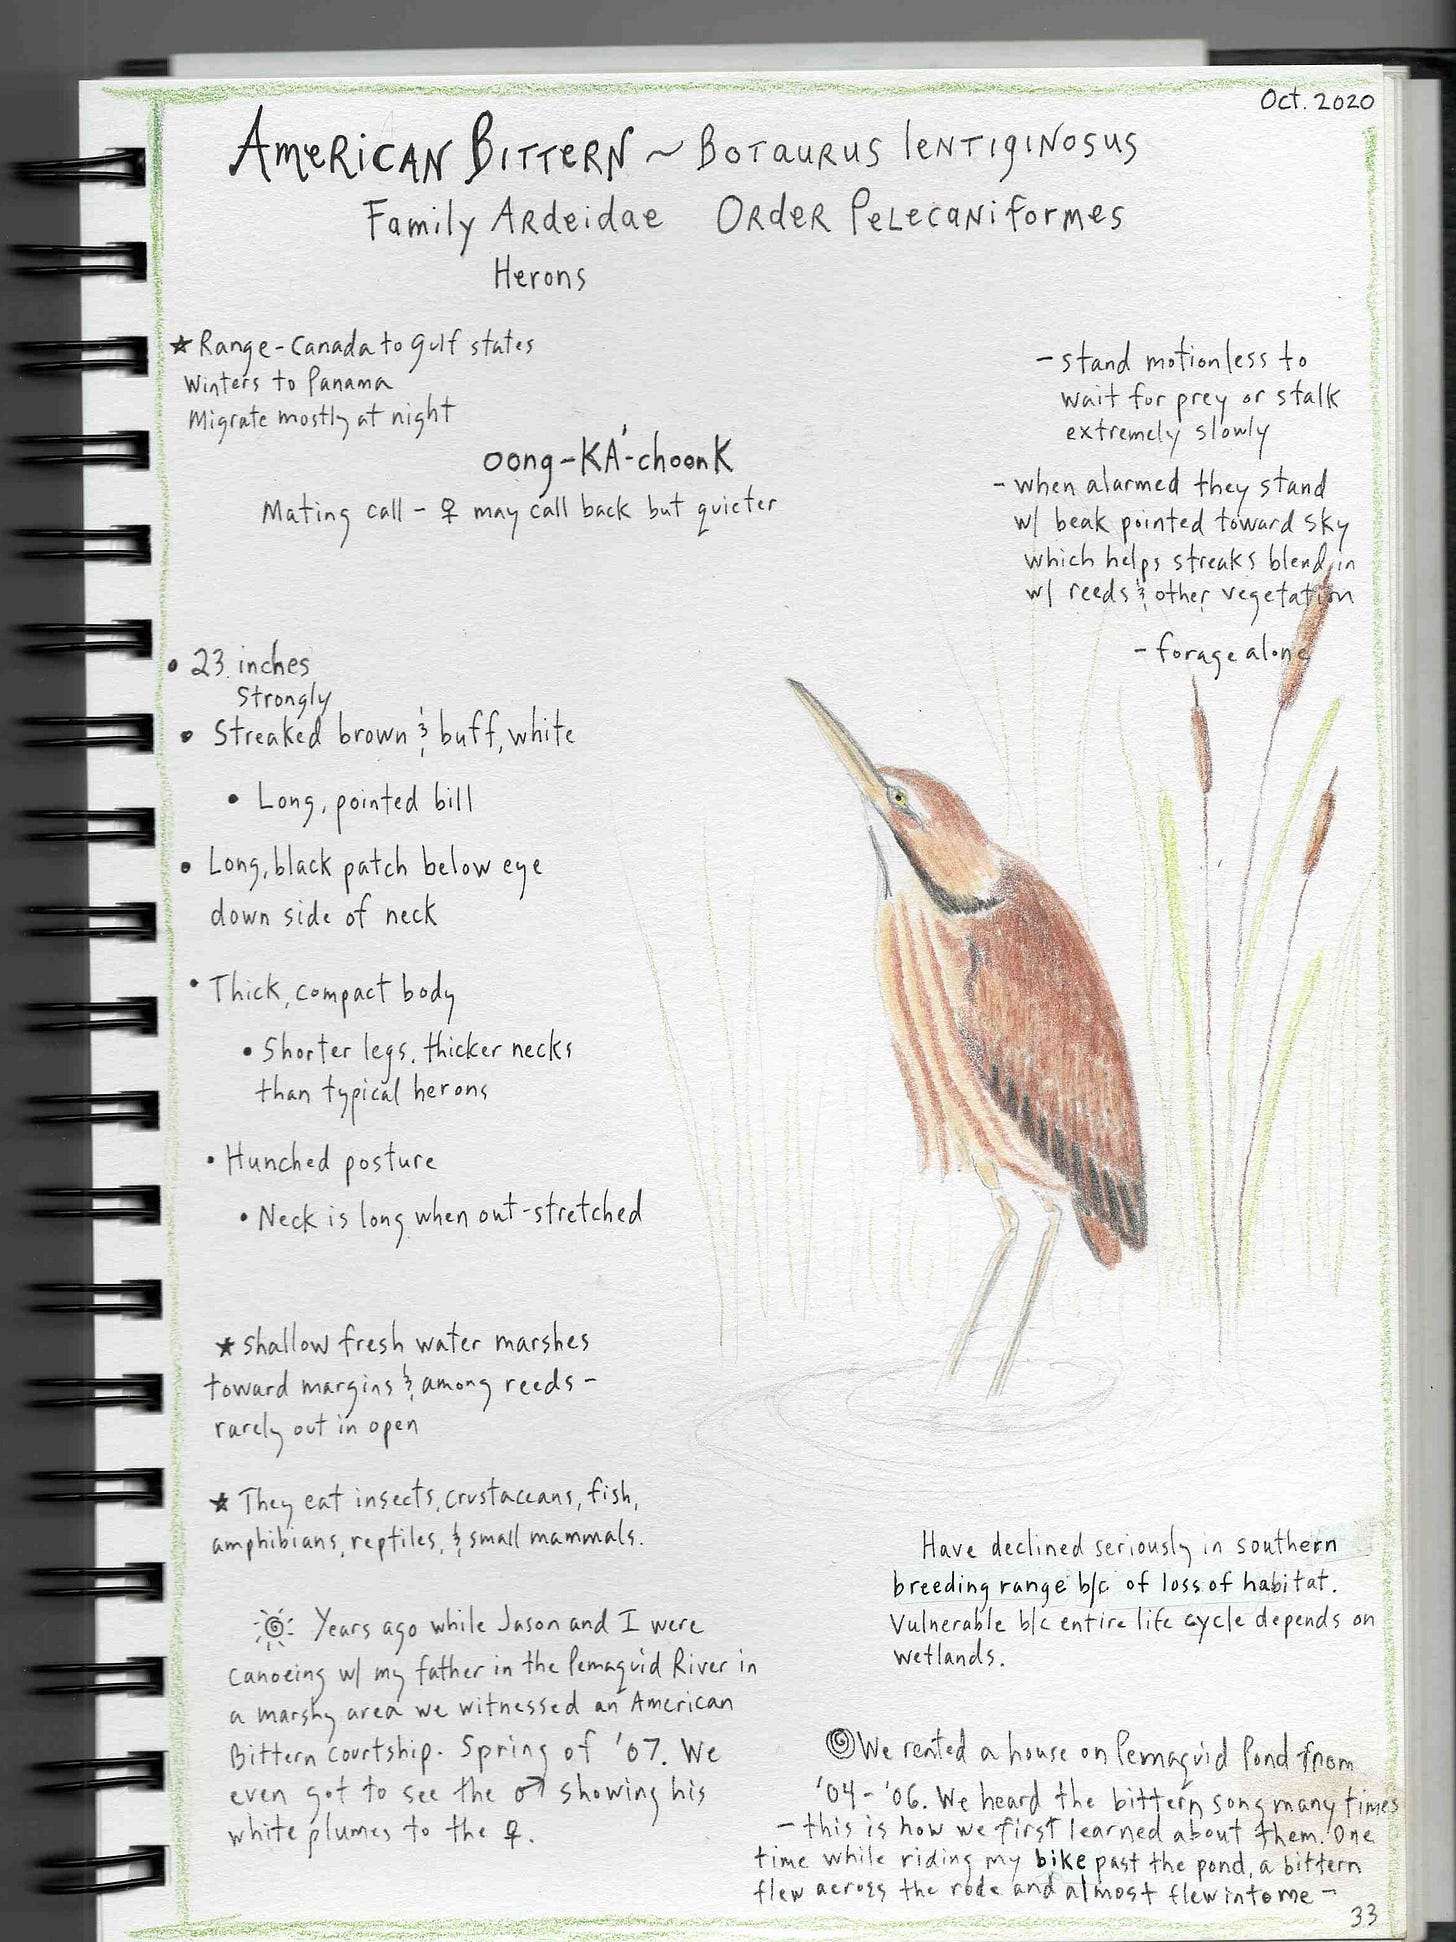 Oct. 2020
American Bittern ~ Botaurus lentiginosus
Family Ardeidae Order Pelecaniformes
Herons
★ Range - Canada to gulf states
Winters to Panama
Migrate mostly at night
oong-KA'-choonk
Mating call - ♀ may call back but quieter
- stand motionless to
wait for prey or stalk
extremely slowly
- when alarmed they stand
w/ beak pointed toward sky
which helps streaks blend in
w/ reeds & other vegetation
- forage alone
• 23 inches
Strongly
• Streaked brown & buff, white
• Long, pointed bill
• Long, black patch below eye
down side of neck
• Thick, compact body
• Shorter legs, thicker necks
than typical herons
• Hunched posture
• Neck is long when out-stretched
★ Shallow fresh water marshes
toward margins & among reeds -
rarely out in open
★ They eat insects, crustaceans, fish,
amphibians, reptiles, & small mammals.
Years ago while Jason and I were
canoeing w/ my father in the Pemaquid River in
a marshy area we witnessed an American
Bittern courtship. Spring of '07. We
even got to see the ♂ showing his
white plumes to the ♀.
Have declined seriously in southern
breeding range b/c of loss of habitat.
Vulnerable b/c entire life cycle depends on
wetlands.
We rented a house on Pemaquid Pond from
'04 - '06. We heard the bittern song many times
- this is how we first learned about them. One
time while riding my bike past the pond, a bittern
flew across the rode and almost flew into me -
33